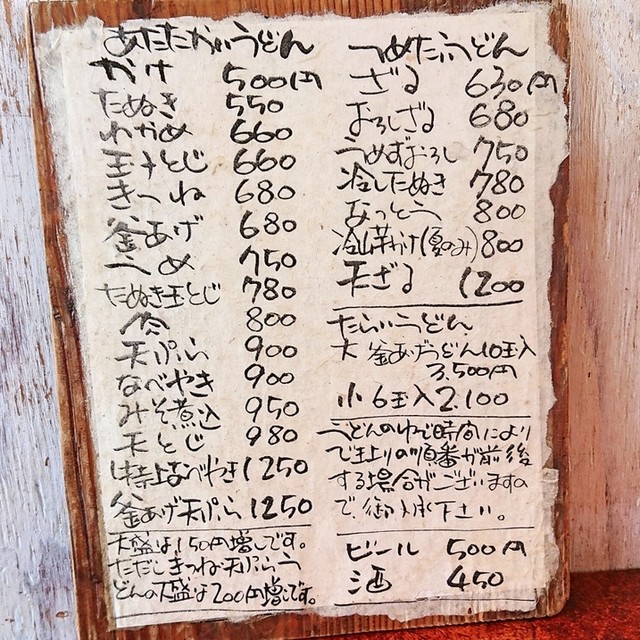 あたたかいうどん
かけ 500円
たぬき 550
わかめ 660
玉子とじ 660
きつね 680
釜あげ 680
うめ 750
たぬき玉とじ 780
肉 800
天ぷら 900
なべやき 900
みそ煮込 950
天とじ 980
特上なべやき 1250
釜あげ天ぷら 1250
大盛は150円増しです。
ただしきつね・天ぷらう
どんの大盛は200円増しです。
つめたいうどん
ざる 630円
おろしざる 680
うめずおろし 750
冷したぬき 780
なっとう 800
冷山芋かけ(夏のみ) 800
天ざる 1200
たらいうどん
大 釜あげうどん10玉入
3,500円
小 6玉入 2,100
うどんのゆで時間により
で上りの順番が前後
する場合がございますの
で、御了承下さい。
ビール 500円
酒 450